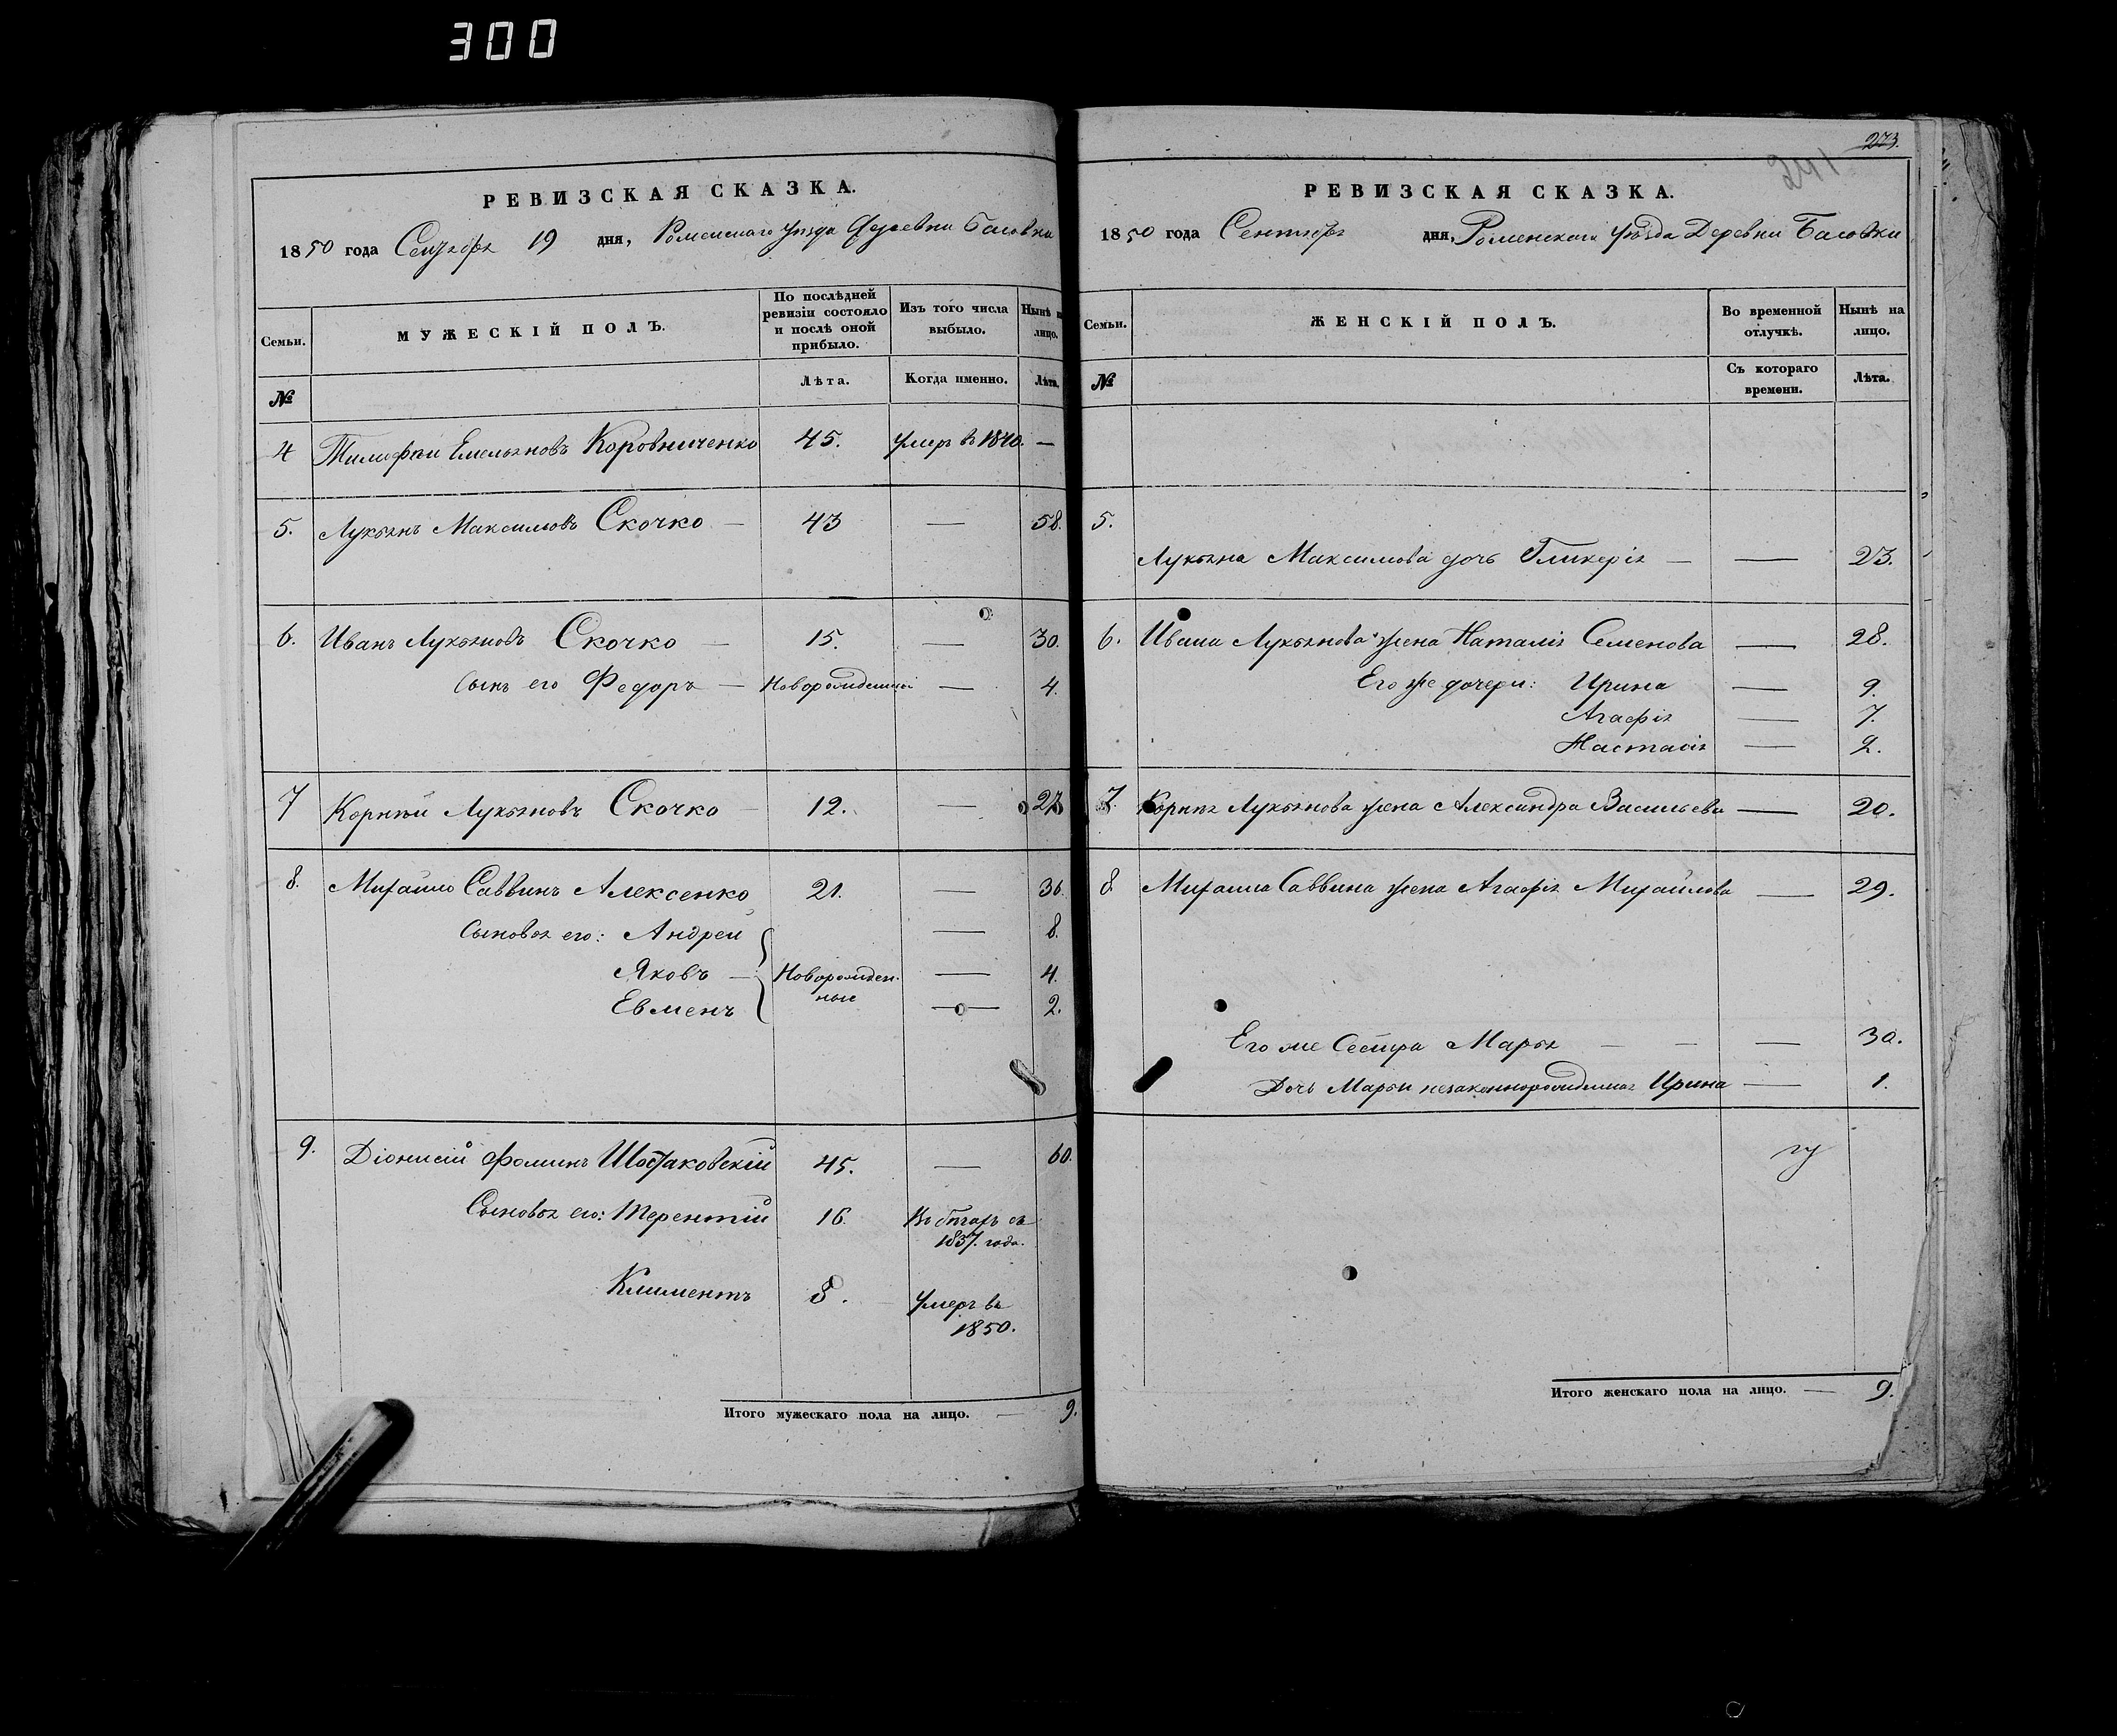 300
РЕВИЗСКАЯ СКАЗКА.
1850 года Сентября 19 дня, Роменскаго уѣзда Деревни Басовки
Семьи. МУЖЕСКІЙ ПОЛЪ. По послѣдней ревизіи состояло и послѣ оной прибыло. Изъ того числа выбыло. Нынѣ на лицо.
№ Лѣта. Когда именно. Лѣта.
4 Тимофей Емельяновъ Коровниченко 45. умеръ въ 1840. —
5. Лукьянъ Максимовъ Скочко — 43 — 58.
6. Иванъ Лукьяновъ Скочко — 15. — 30.
Сынъ его Федоръ — Новорожденный — 4.
7 Корнѣй Лукьяновъ Скочко — 12. — 27
8. Михайло Саввинъ Алексенко 21. — 36.
Сыновья его: Андрей — 8.
Яковъ — Новорожден- — 4.
ные
Евменъ — 2.
9. Діонисій Фоминъ Шостаковскій 45. — 60.
Сыновья его: Терентій 16. Въ бѣгахъ съ
1837. года.
Климентъ 8. Умеръ въ
1850.
Итого мужескаго пола на лицо. — 9.
273.
241
РЕВИЗСКАЯ СКАЗКА.
1850 года Сентября дня, Роменскаго уѣзда Деревни Басовки
Семьи. ЖЕНСКІЙ ПОЛЪ. Во временной отлучкѣ. Нынѣ на лицо.
№ Съ котораго времени. Лѣта.
5.
Лукьяна Максимова дочь Гликерія — — 23.
6. Ивана Лукьянова жена Наталія Семенова — 28.
Его же дочери: Ирина — 9.
Агафія — 7.
Настасія — 2.
7. Корнѣя Лукьянова жена Александра Васильева — 20.
8 Михайла Саввина жена Агафія Михайлова — 29.
Его же Сестра Марья — — — 30.
Дочь Марьи незаконнорожденная Ирина — 1.
Итого женскаго пола на лицо. — 9.